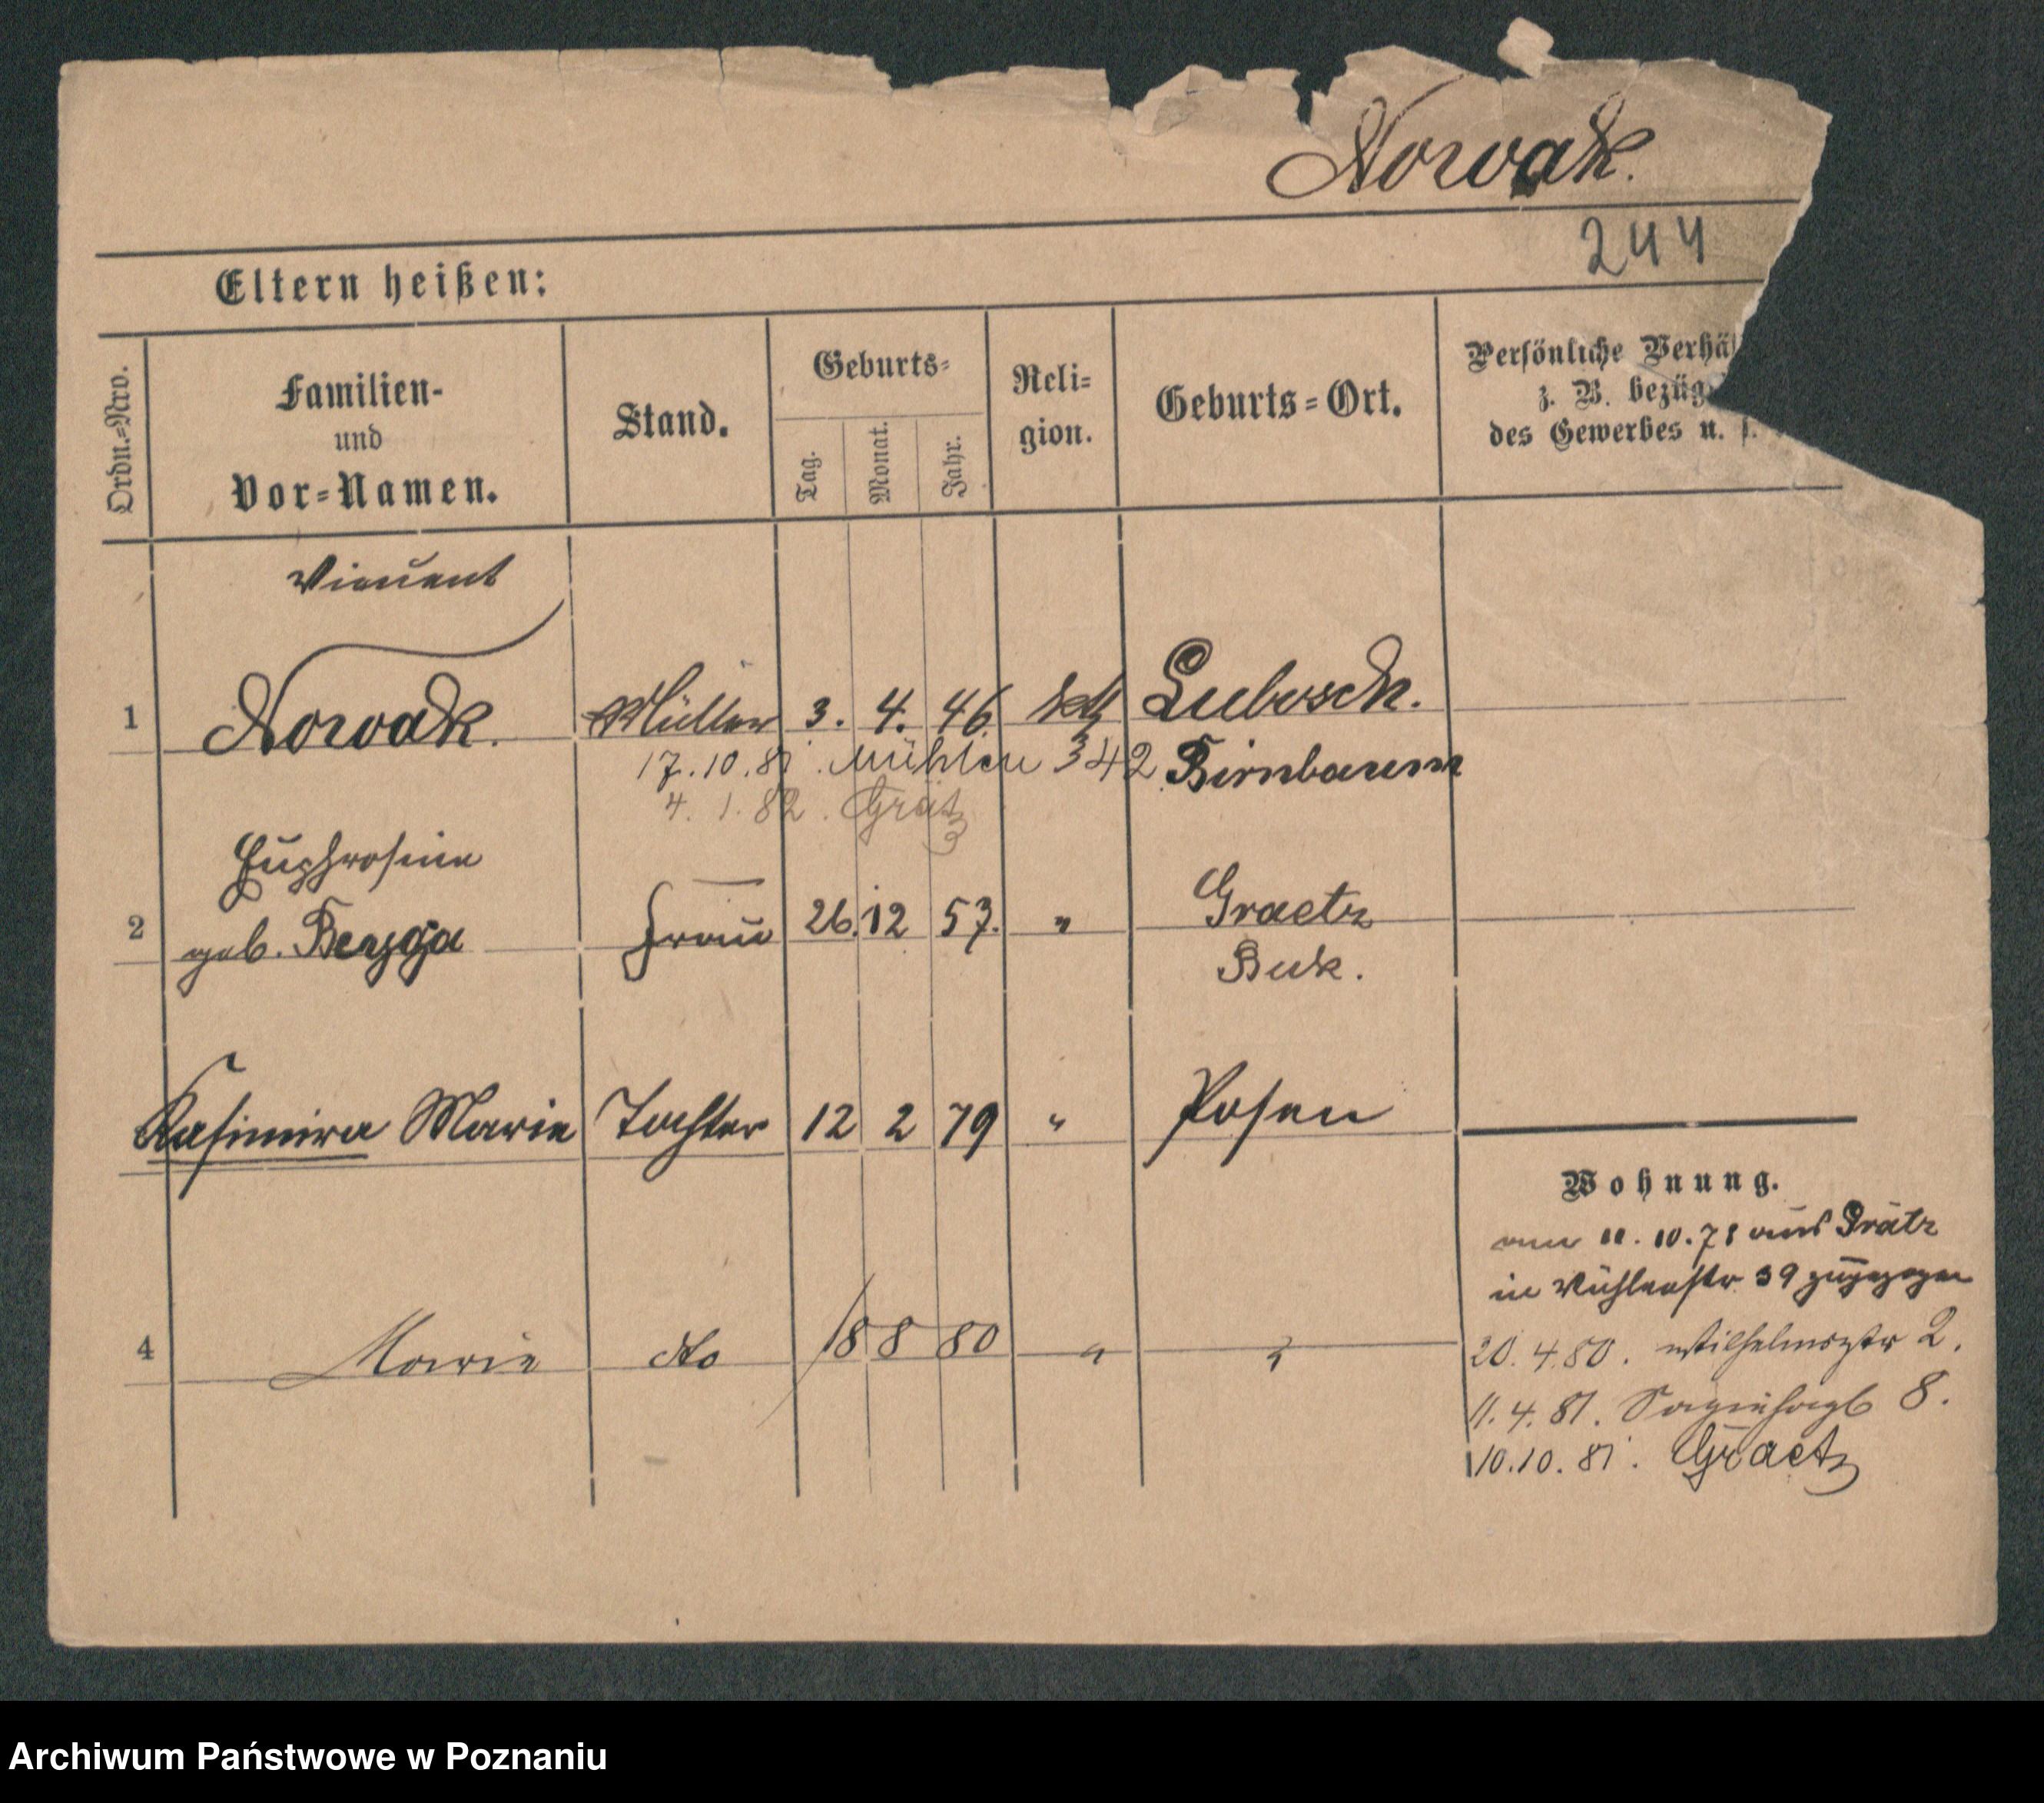 Nowak.
244
Eltern heißen:
Ordn.=Nro.
Familien-
und
Vor=Namen.
Stand.
Geburts=
Tag.
Monat.
Jahr.
Reli=
gion.
Geburts=Ort.
Persönliche Verhä
z. B. bezüg
des Gewerbes u. s.
Vincent
1 Nowak. Müller 3. 4. 46. kth Lubosch.
17.10.81. Mühlen 342 Birnbaum
4. 1. 82. Grätz
Euphrosine
2 geb. Frau 26. 12 53. " Graetz
Buk.
Kasimira Marie Tochter 12 2 79 " Posen
Wohnung.
am 11. 10. 78 aus Grätz
in Mühlenstr 39 zugezogen
4 Marie do 18 8 80 " "
20. 4. 80. Wilhelmsstr 2.
11. 4. 81. 8.
10. 10. 81. Graetz
Archiwum Państwowe w Poznaniu